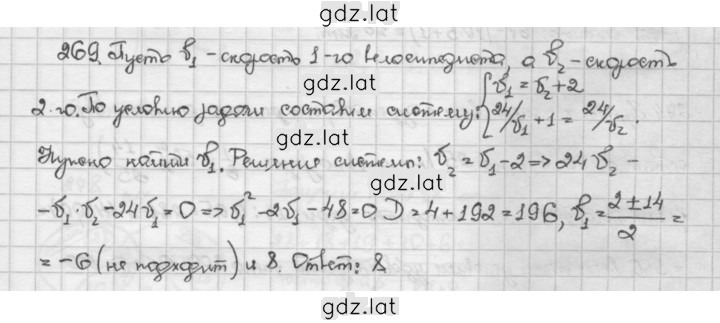 gdz.lat
269. Пусть v₁ - скорость 1-го велосипедиста, а v₂ - скорость
gdz.lat
2-го. По условию задачи составим систему: { v₁ = v₂ + 2
24/v₁ + 1 = 24/v₂.
gdz.lat
Нужно найти v₁. Решение системы: v₂ = v₁ - 2 => 24 v₂ -
gdz.lat
- v₁ · v₂ - 24 v₁ = 0 => v₁² - 2v₁ - 48 = 0 D = 4 + 192 = 196, v₁ = (2 ± 14)/2 =
= -6 (не подходит) и 8. Ответ: 8
gdz.lat
gdz.lat